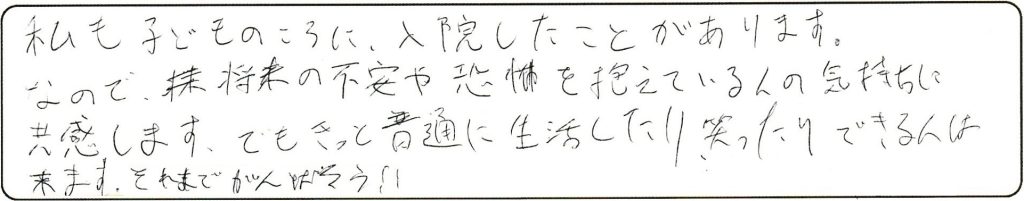 私も子どものころに、入院したことがあります。
なので、将来の不安や恐怖を抱えている人の気持ちに
共感します、でもきっと普通に生活したり笑ったりできる日は
来ます。それまでがんばろう!!